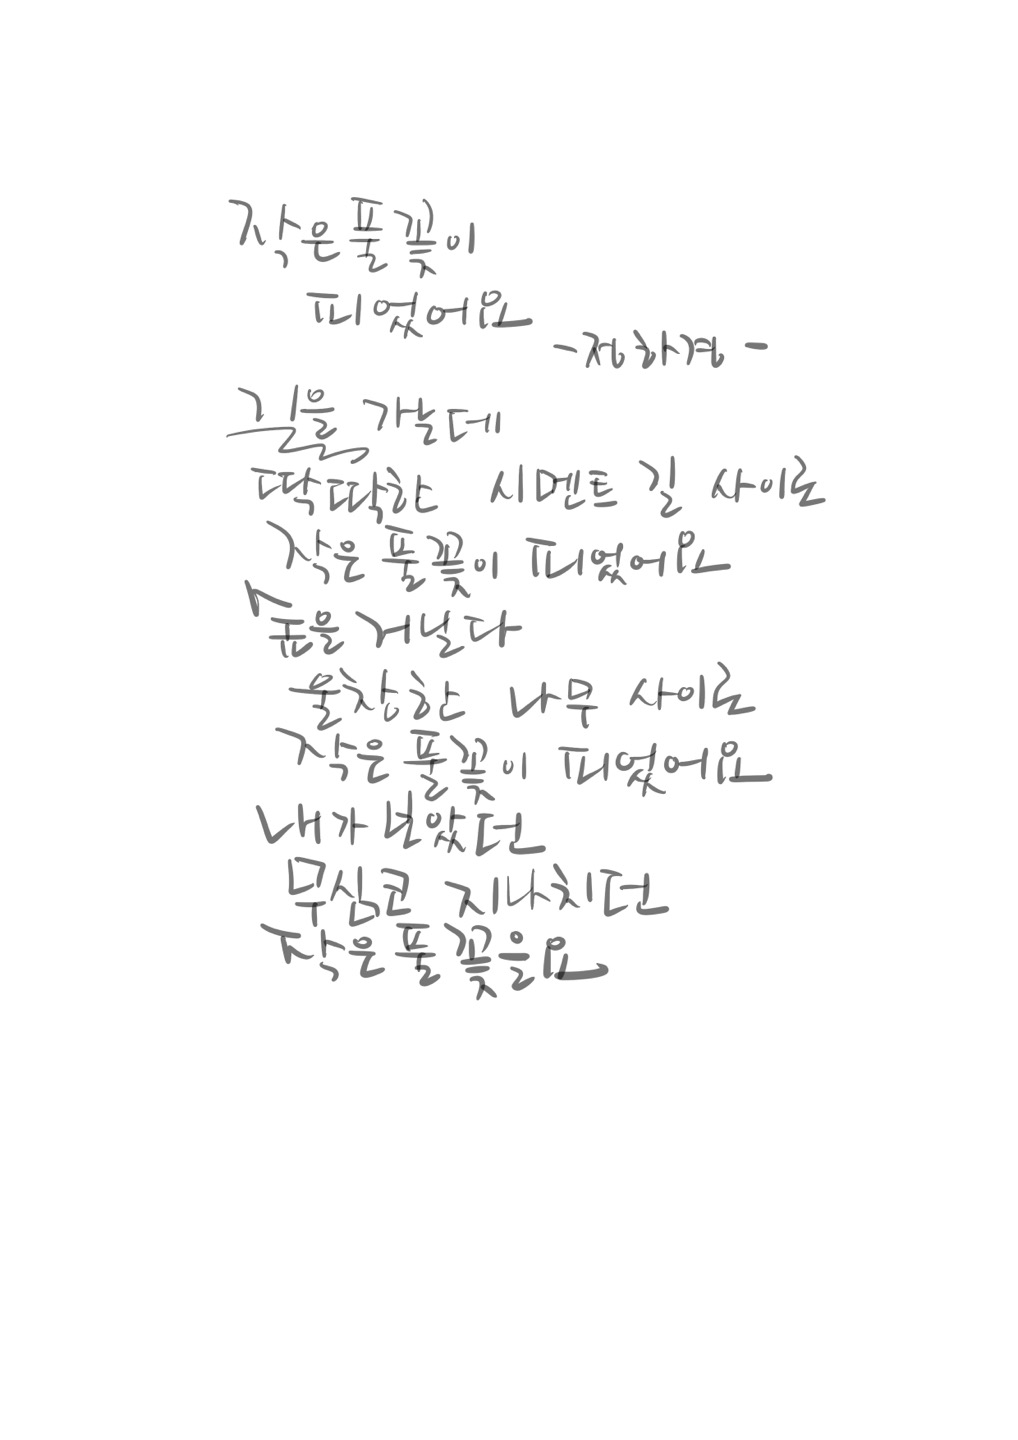 작은 풀꽃이
피었어요
-정하경-
길을 가는데
딱딱한 시멘트 길 사이로
작은 풀꽃이 피었어요
숲을 거닐다
울창한 나무 사이로
작은 풀꽃이 피었어요
내가 보았던
무심코 지나치던
작은 풀꽃을요